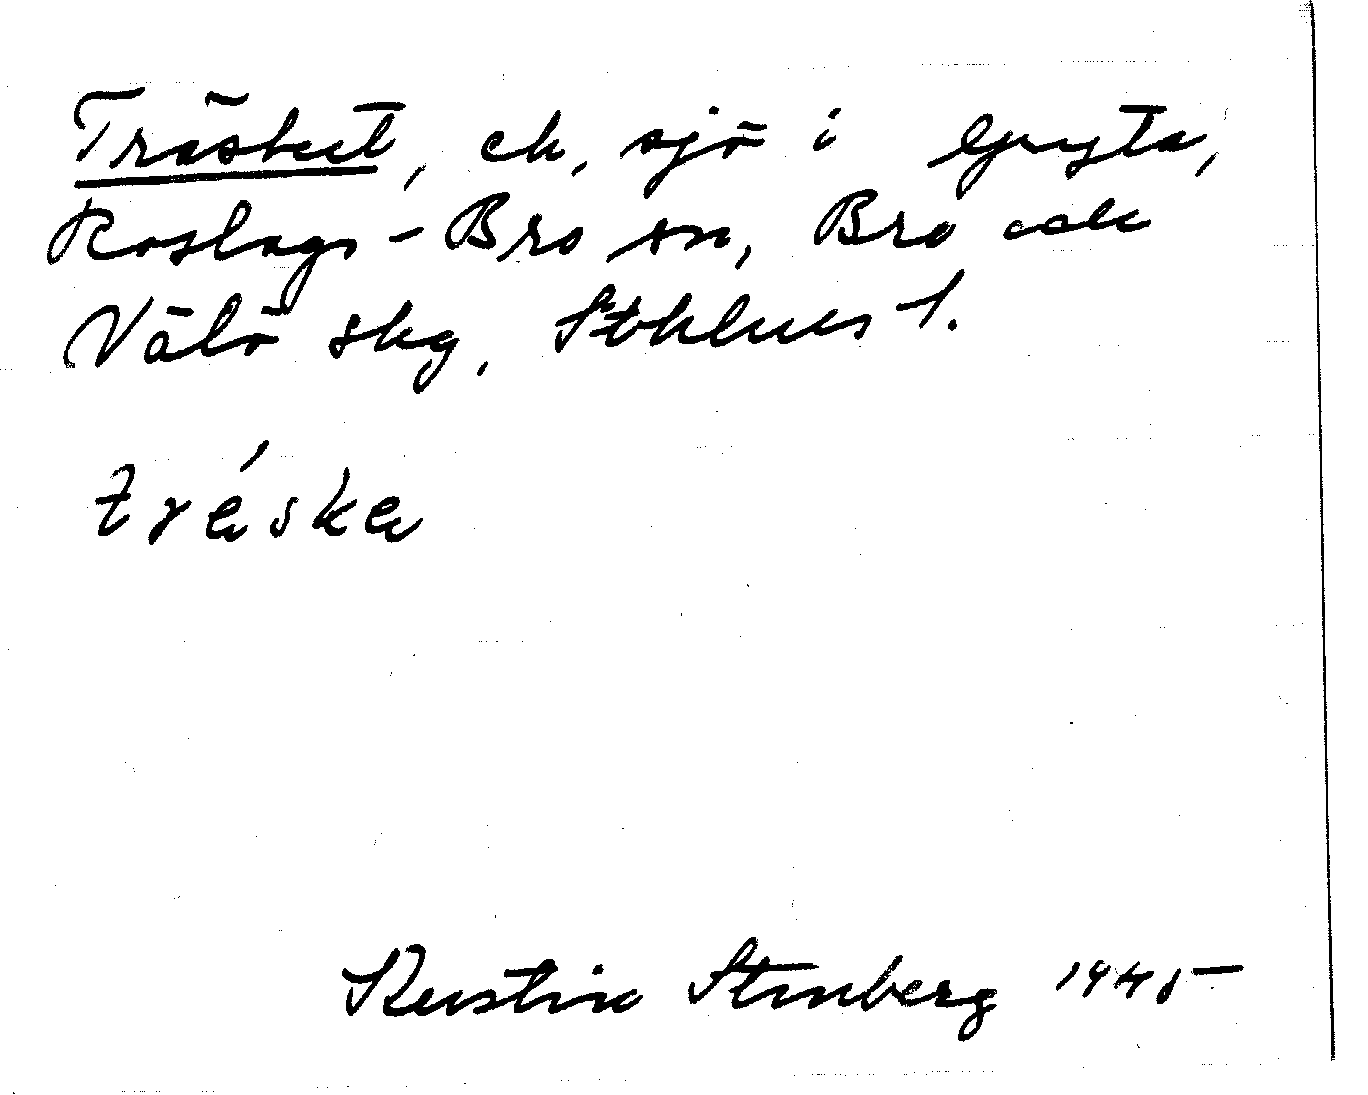 Träsket, ek, sjö i Gryta,
Roslags-Bro sn, Bro och
Välö skg, Sthlms l.
träska
Kerstin Stenberg 1945